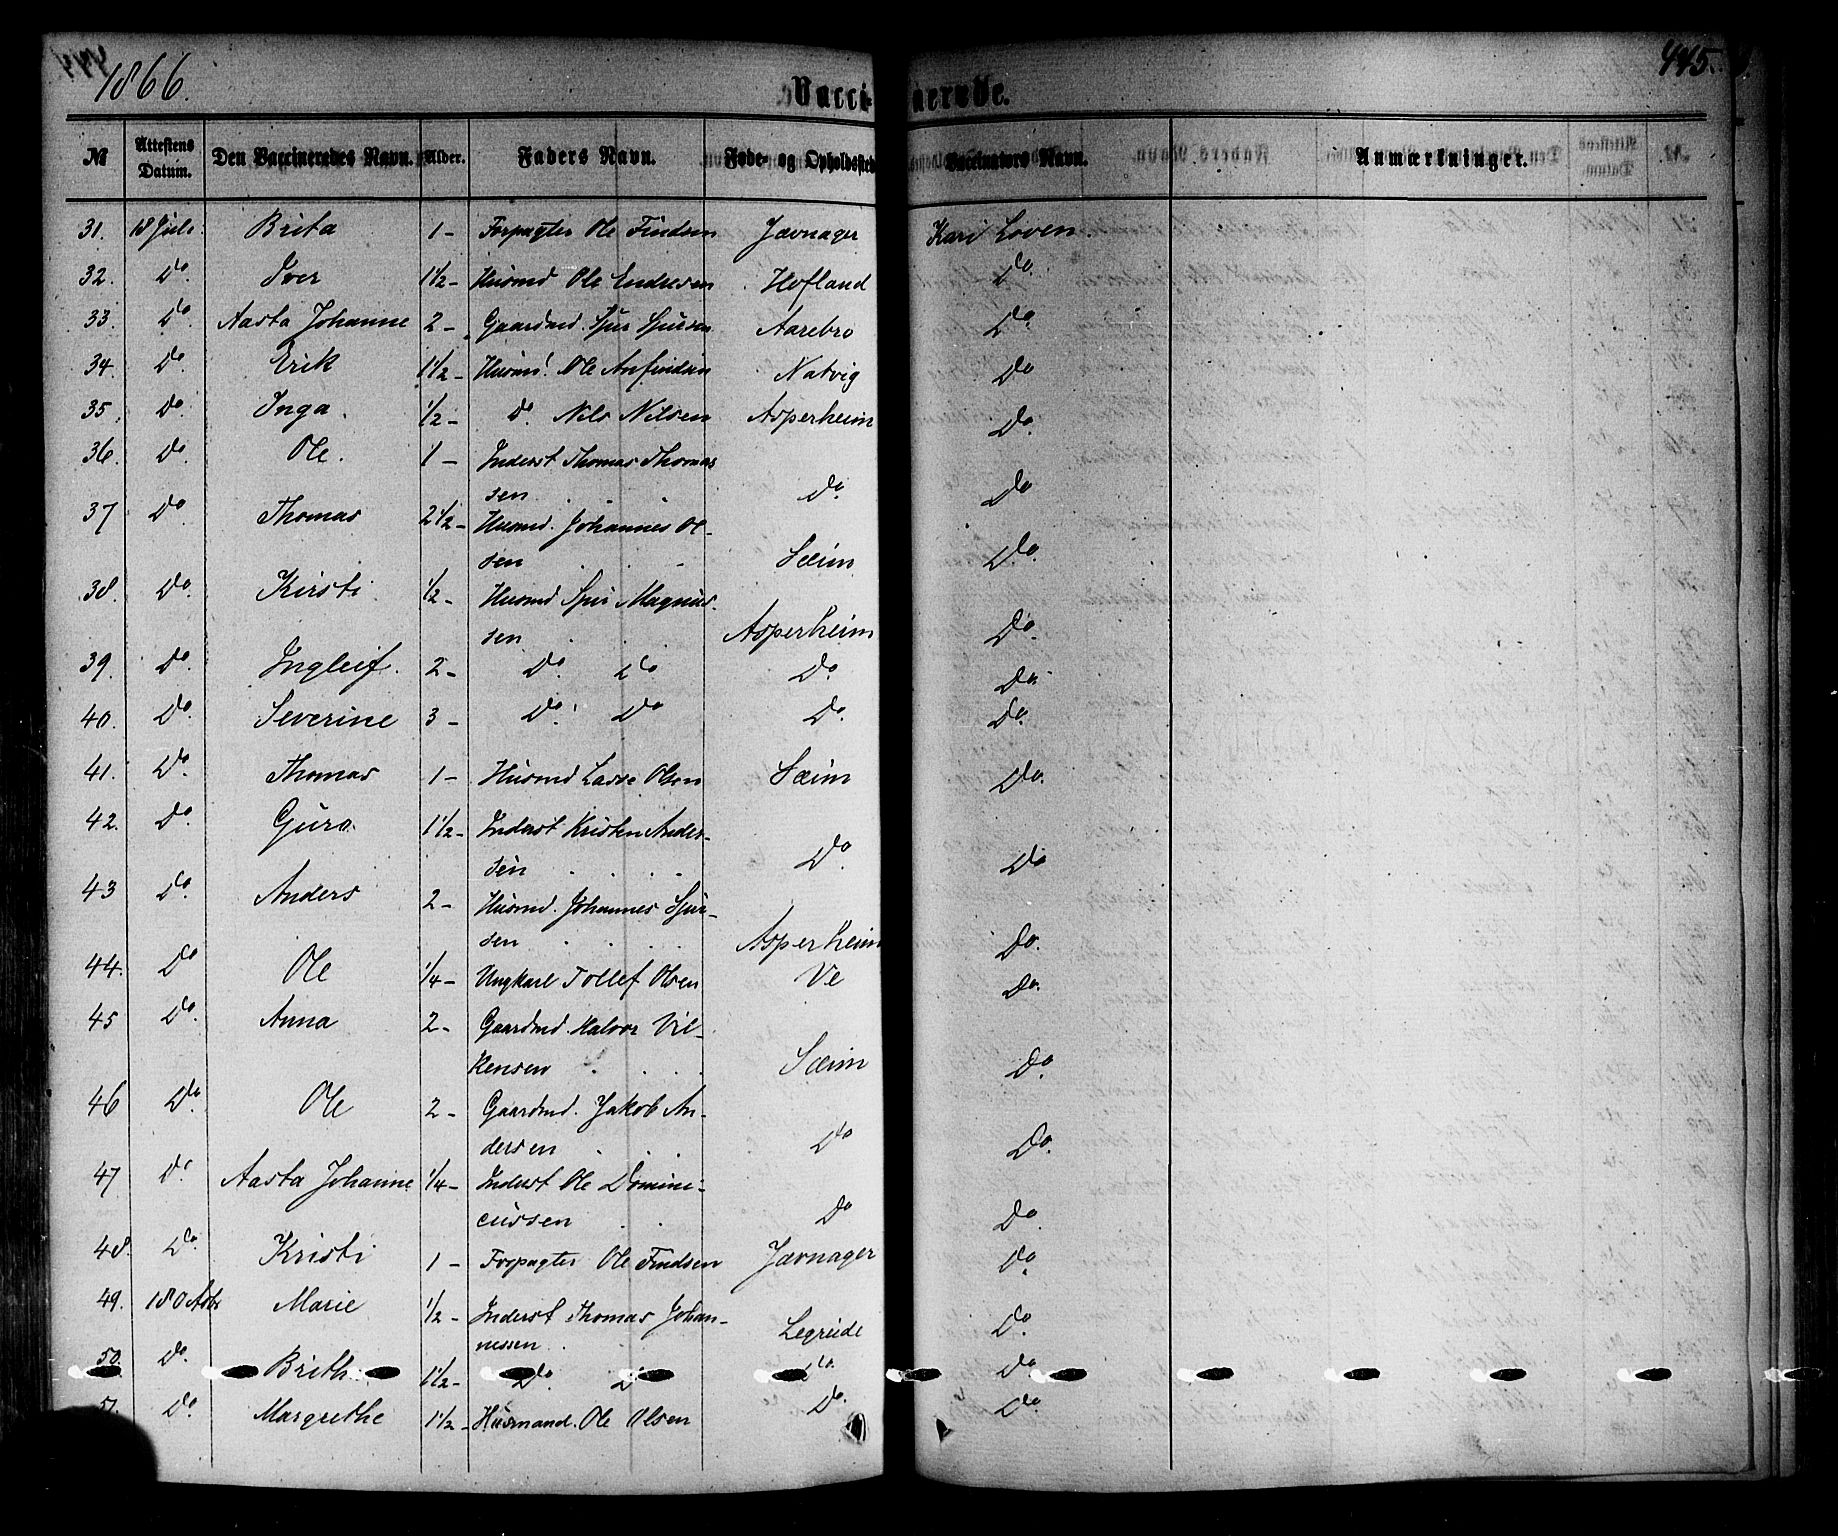 1866.
445.
Vaccinerede.
№ Attestens Datum. Den Vaccineredes Navn. Alder. Faders Navn. Føde- og Opholdssted Vaccinators Navn. Anmærkninger.
31. 18 Juli. Brita 1 - Forpagter Ole Findsen Jævnager Kari Loven.
32. Do. Iver 1 1/2 - Husmd Ole Endresen Hofland Do
33. Do. Aasta Johanne 2 - Gaardmd. Sjur Sjursen Aarebro Do.
34. Do. Erik 1 1/2 - Husmd. Ole Anfindsen Natvig Do
35. Do. Inga. 1/2 - Do. Nils Nilsen Asperheim Do.
36. Do. Ole. 1 - Inderst Thomas Thomas
sen . . . Do. Do
37 Do. Thomas 2 1/2 - Husmd. Johannes Ol-
sen . . . Sæim Do.
38. Do. Kirsti 1/2 - Husmd Sjur Magnus-
sen . . Asperheim Do.
39. Do. Ingleif. 2 - Do. Do Do. Do.
40. Do. Severine 3 - Do. Do Do. Do.
41. Do. Thomas 1 - Husmd Lasse Olsen Sæim Do.
42. Do. Guro. 1 1/2 - Inderst Kristen Ander-
sen . . . . Do. Do
43 Do. Anders 2 - Husmd. Johannes Sjur-
sen . . . . Asperheim Do.
44. Do Ole 1/4 - Ungkarl Tollef Olsen Ve Do.
45 Do. Anna 2 - Gaardmd. Halvor Vil-
kensen . . . . Sæim Do.
46 Do. Ole 2 - Gaardmd. Jakob An-
dersen . . . Do Do.
47 Do. Aasta Johanne 1/4 - Inderst Ole Domini-
cussen . . Do Do.
48. Do. Kristi 1 - Forpagter Ole Findsen Jævnager Do.
49. Marie 1/2 - Inderst Thomas Johan-
nessen . . Legreide Do.
50. Do. Brith. 1 1/2 - Do. Do Do. Do
51. Do. Margrethe 1 1/2 - Husmand. Ole Olsen Do. Do.